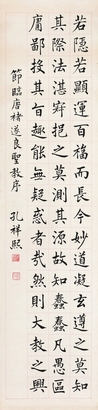 若隱若顯運百福而長今妙道凝遵之莫知
其際法湛寂挹之莫測其源故蠢蠢凡愚區
庸鄙投其旨趣能無疑惑者哉然則大教之興
節臨唐褚遂良聖教序 孔祥熙